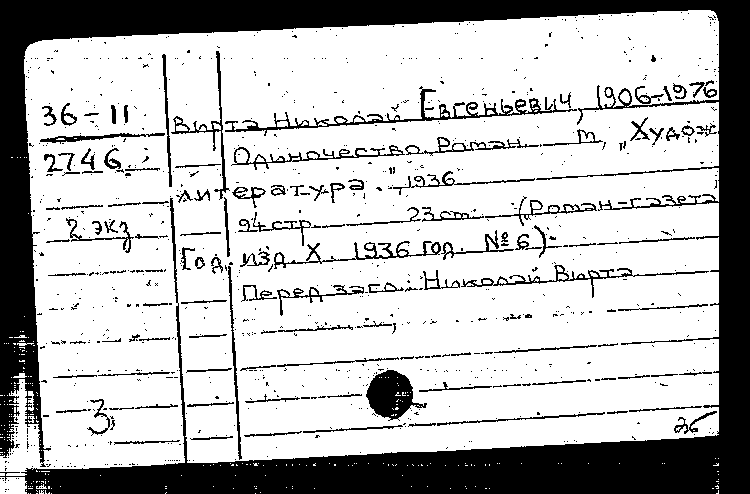 36-11
2746
2 экз.
Вирта, Николай Евгеньевич, 1906-1976
Одиночество. Роман. М., „Худож.
литература.", 1936
94 стр. 23 см. („Роман-газета"
Год. изд. X. 1936 год. № 6).
Перед загл.: Николай Вирта
3
26